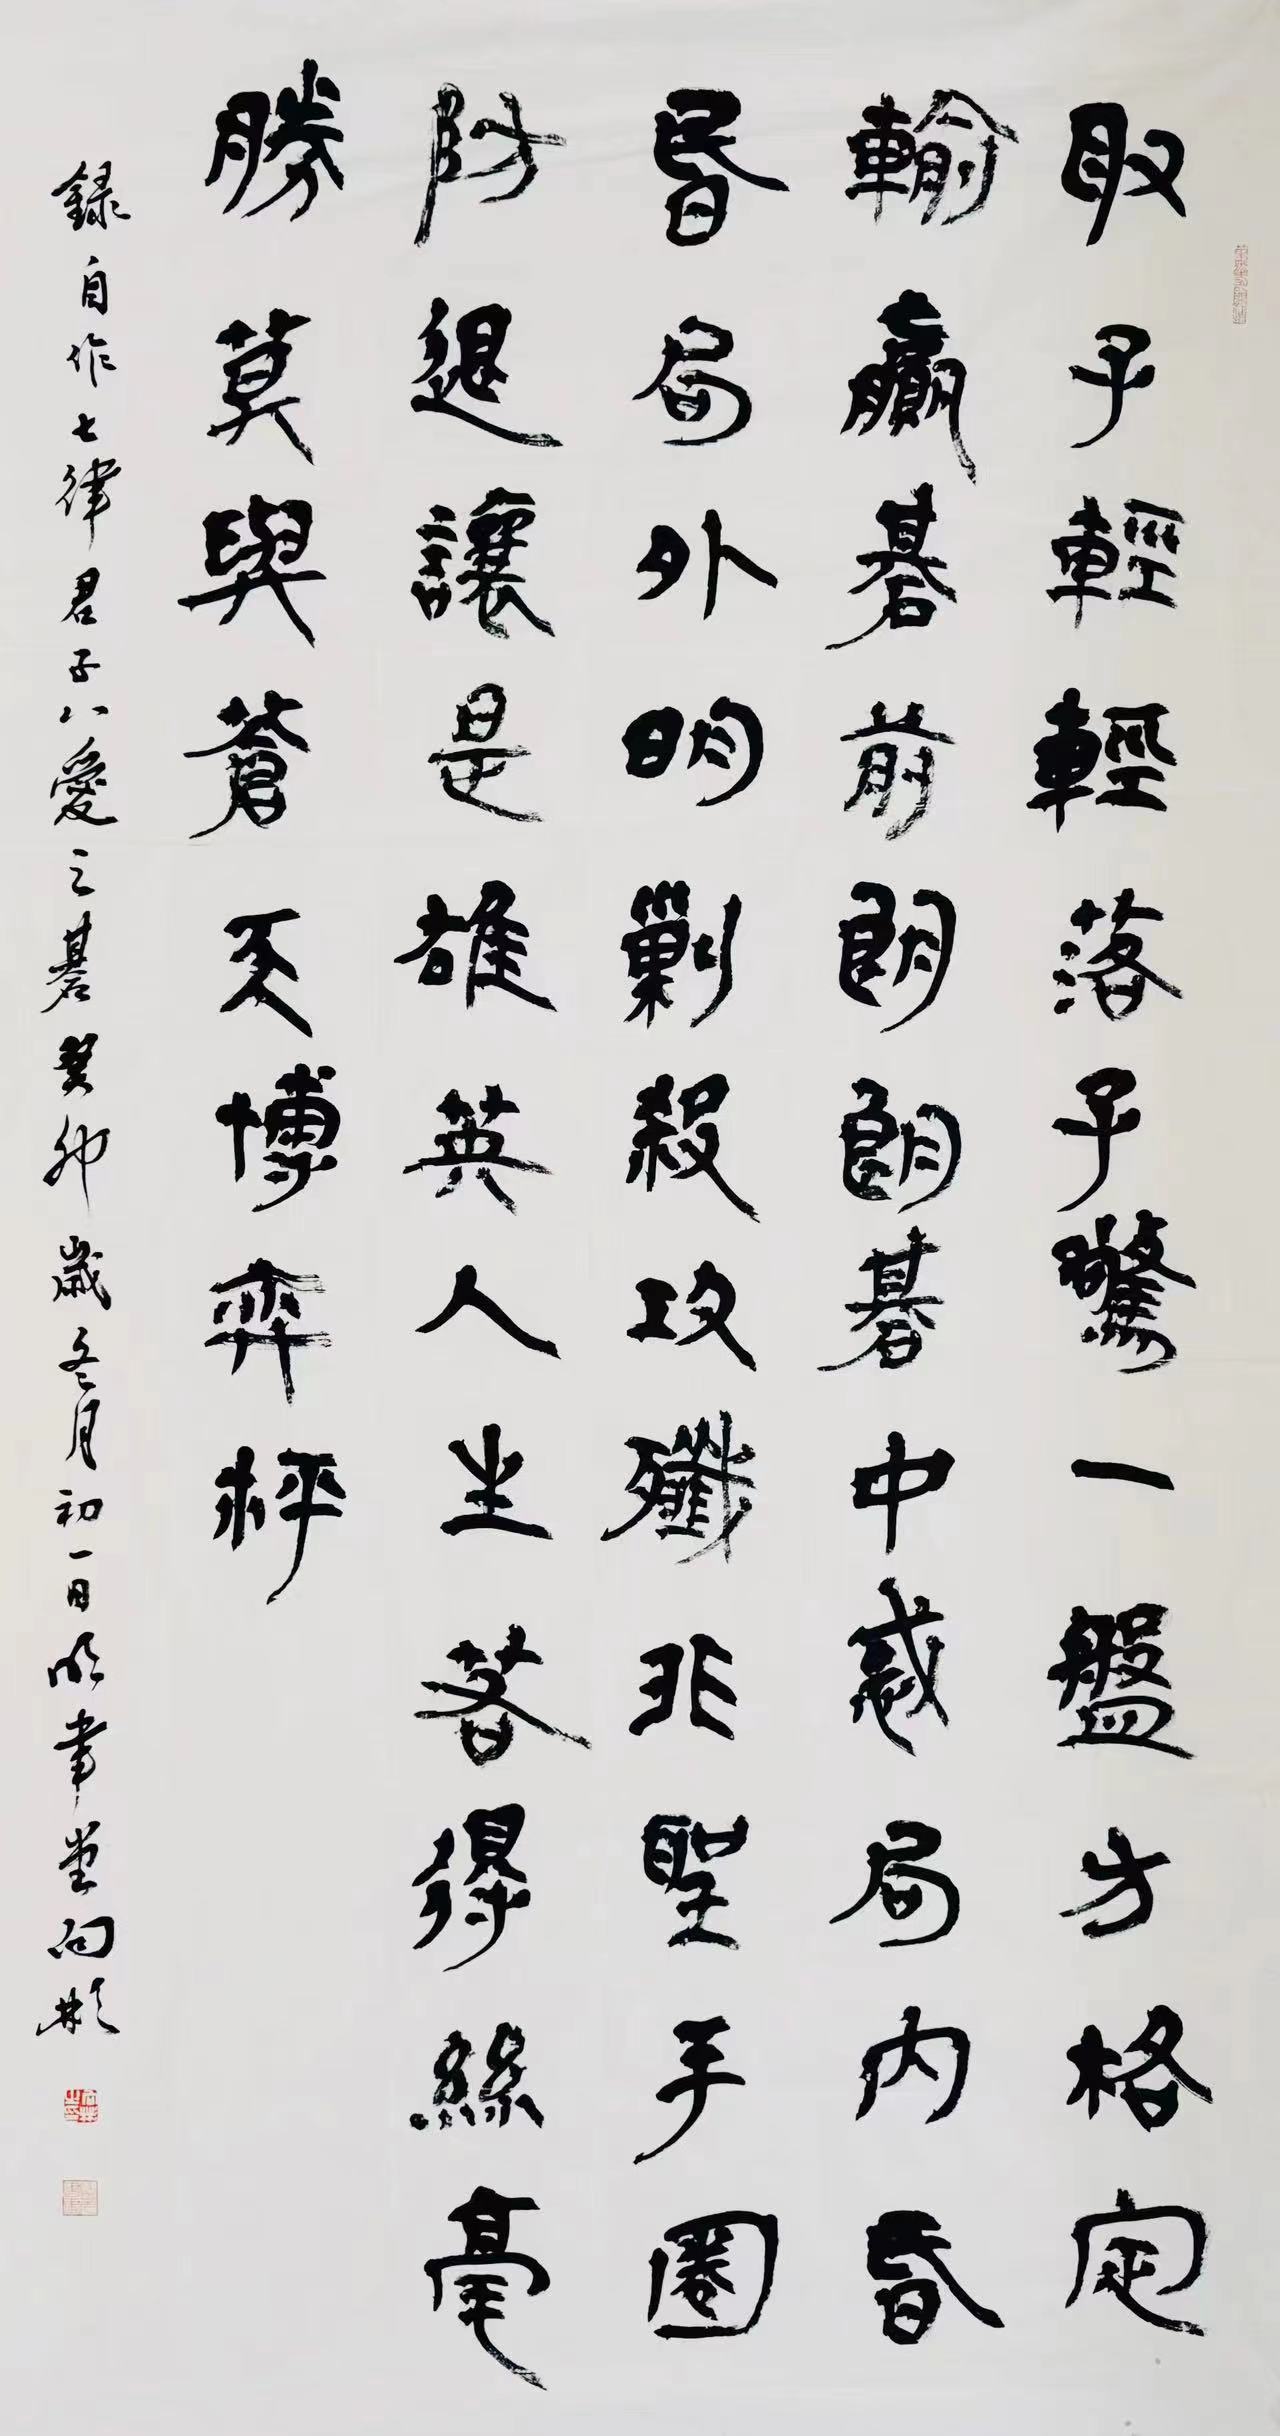 取子輕輕落子驚一盤方格定
輸贏碁前朗朗碁中惑局內昏
昏局外明剿殺攻殲非聖手圈
防退讓是雄英人生若得絲毫
勝莫與蒼天博弈枰
録自作七律君子八愛之碁癸卯歲冬月初一日